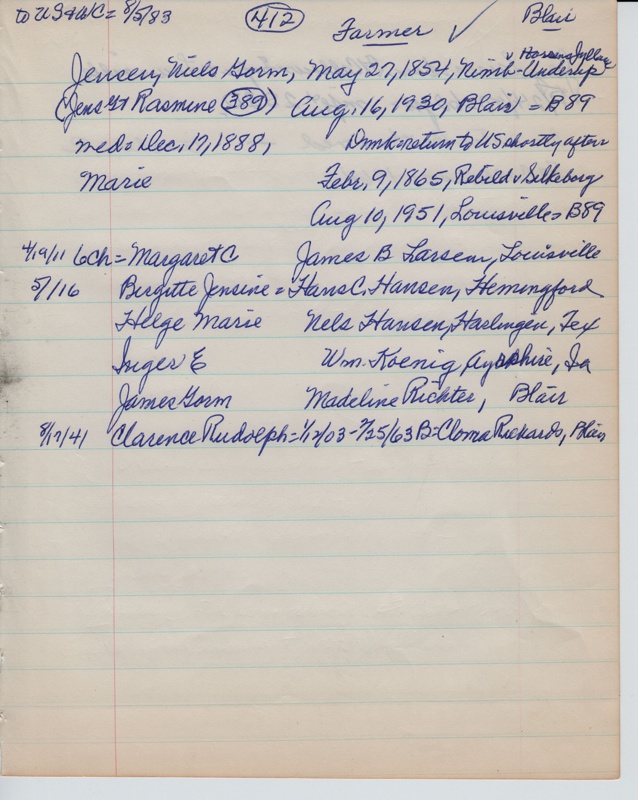 to US & WC = 8/5/83 412 Farmer ✓ Blair
v Horsens Jylland
Jensen, Niels Gorm, May 27, 1854, Nimb-Underup
(Jens G & Rasmine 389) Aug, 16, 1930, Blair = B 89
med = Dec, 17, 1888, Dmk = return to US shortly after
Marie Febr, 9, 1865, Rebild v Silkeborg
Aug 10, 1951, Louisville = B89
4/19/11 6 Ch = Margaret C James B Larsen, Louisville
5/1/16 Birgitte Jensine = Hans C. Hansen, Hemingford
Helge Marie Nels Hansen, Harlingen, Tex
Inger E Wm. Koenig, Ayrshire, Ia
James Gorm Madeline Richter, Blair
8/17/41 Clarence Rudolph = 1/12/03 - 7/25/63 B = Cloma Rickards, Blair